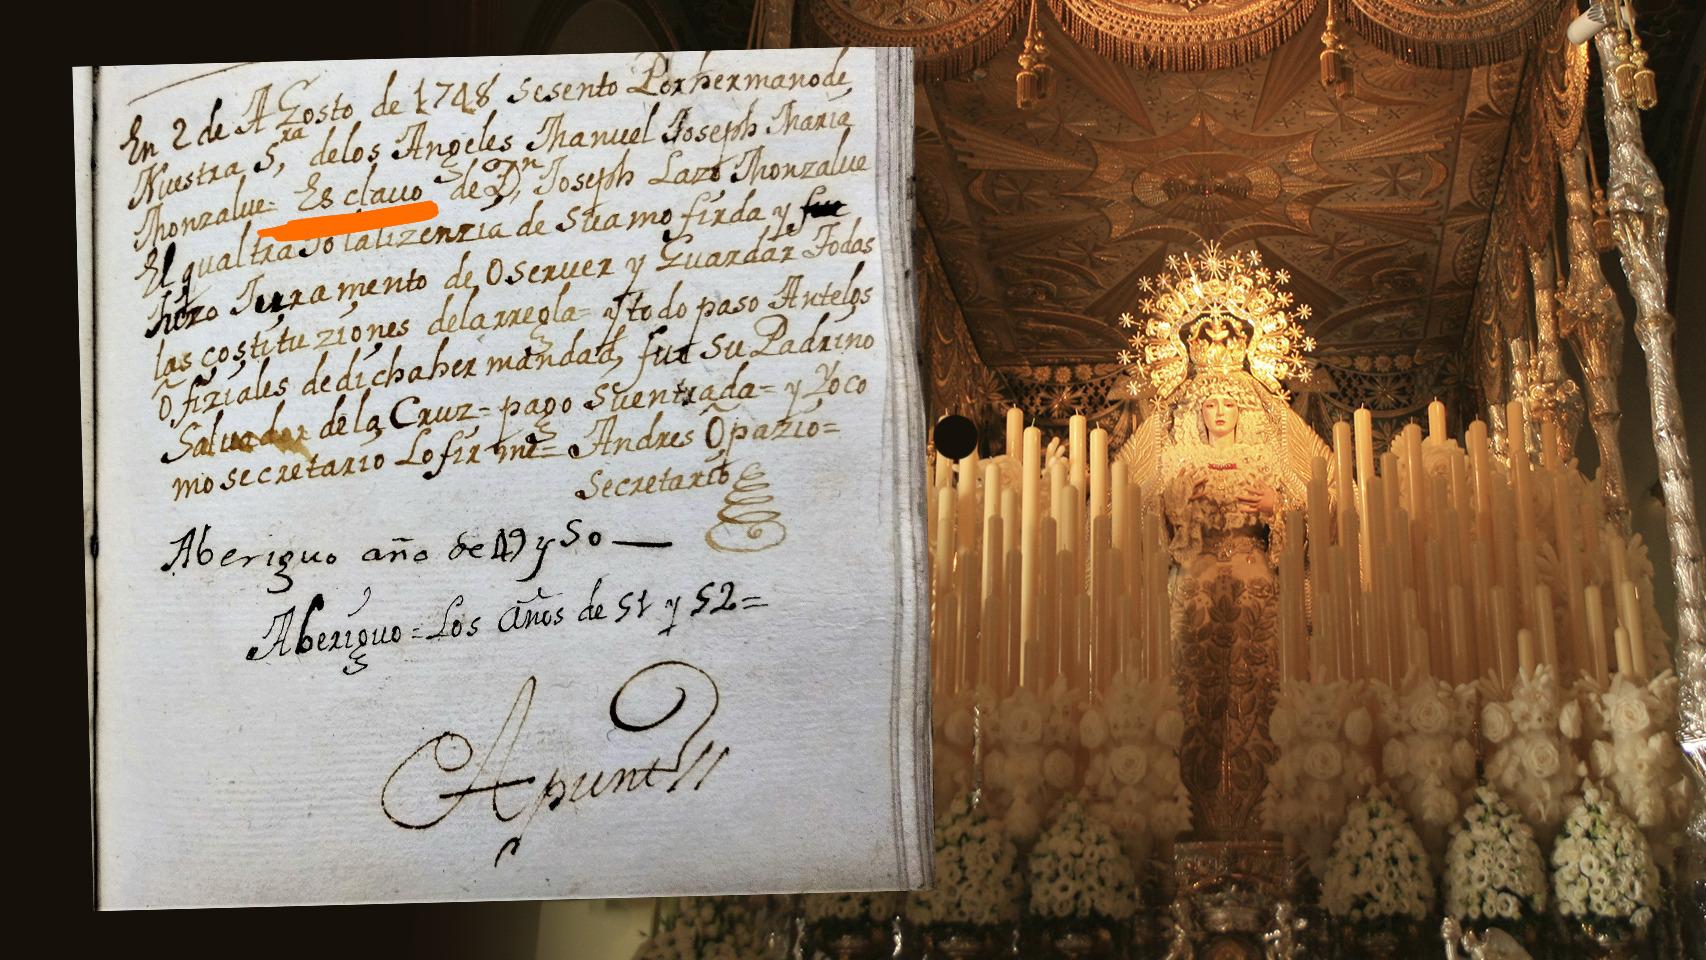 En 2 de AGosto de 1748 sesento Porhermano de
Nuestra S,ra delos Angeles Manuel Joseph Maria
Monzalue= Es clauo de Dn, Joseph Lazo Monzalue
El qual traJo lalizenzia de suamo firda y fue
hizo Jurramento de Oseruer y Guardar Todas
las costituziones delarregla= y todo paso Antelos
Ofiziales dedichahermandad, fue Su Padrino
Saluador dela Cruz= pago Suentrada= y Yoco
mo secretario Lo firme= Andres Opazio=
Secretario
Aberiguo año de 49 y 50
Aberiguo= Los años de 51 y 52=
Apunt